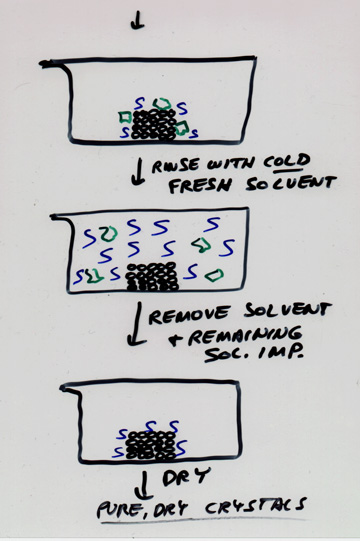 S S
S S
RINSE WITH COLD
FRESH SOLVENT
S S S S
S S S S
S S S
REMOVE SOLVENT
+ REMAINING
SOL. IMP.
S S S
S S
DRY
PURE, DRY CRYSTALS